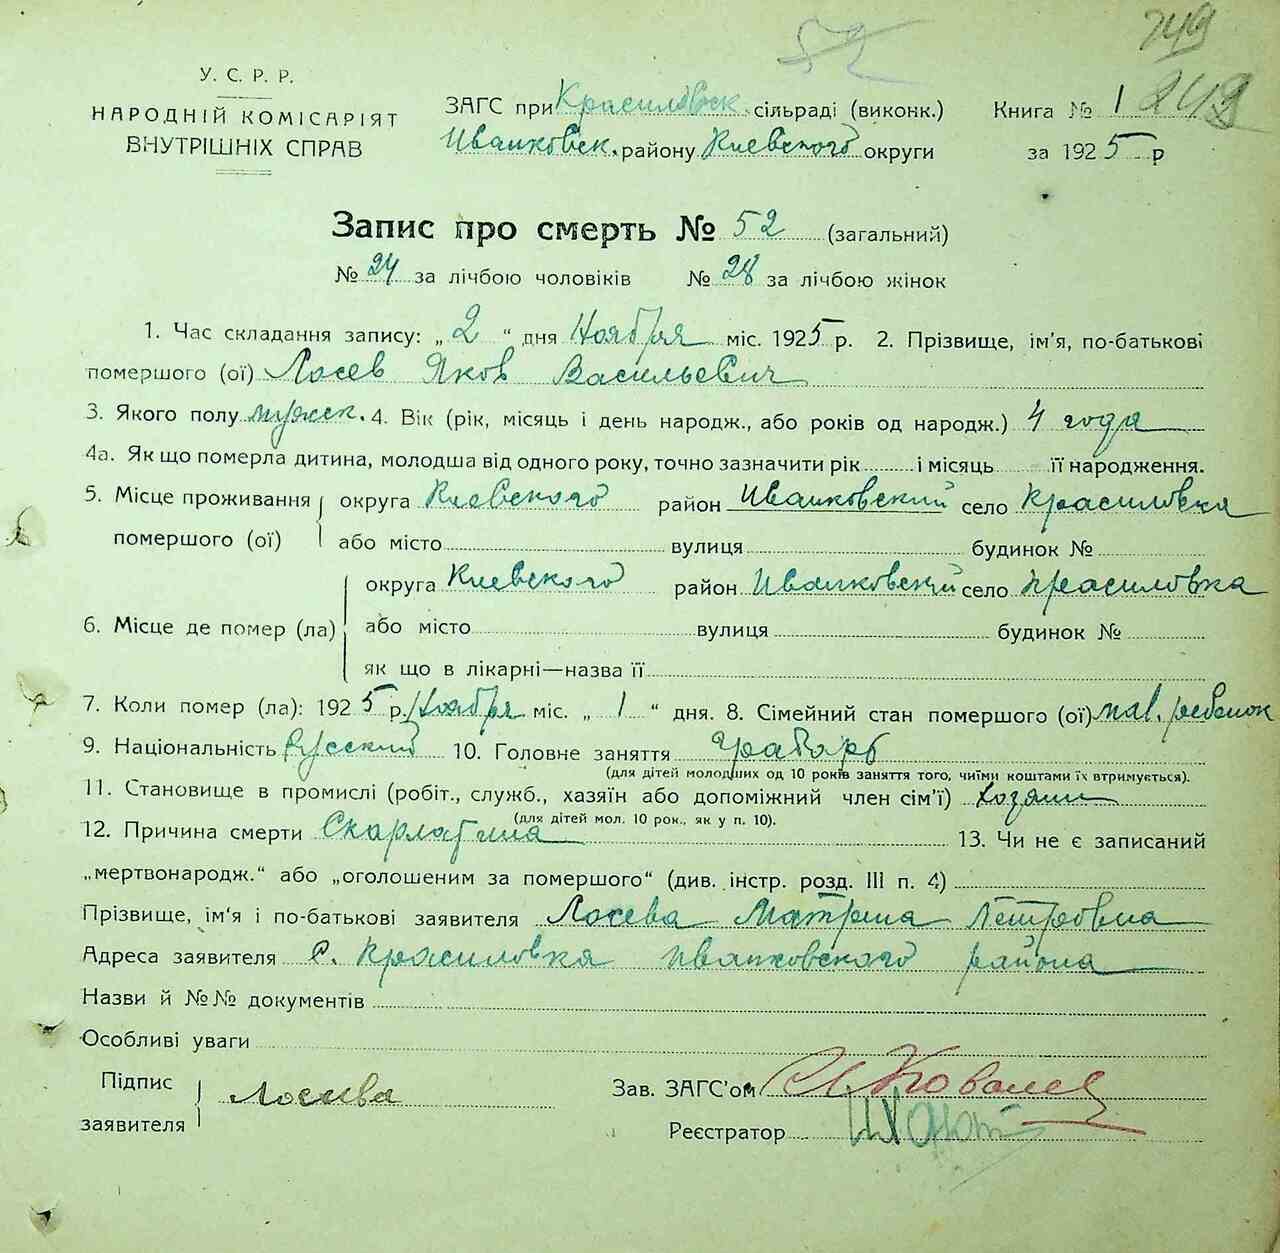 52
249
У. С. Р. Р.
НАРОДНІЙ КОМІСАРІЯТ
ВНУТРІШНІХ СПРАВ
ЗАГС при Красиловск. сільраді (виконк.)
Иванковск. району Киевского округи
Книга № 1 249
за 1925 р
Запис про смерть № 52 (загальний)
№ 24 за лічбою чоловіків № 28 за лічбою жінок
1. Час складання запису: „2“ дня Ноября міс. 1925 р. 2. Прізвище, ім'я, по-батькові
помершого (ої) Лосев Яков Васильевич
3. Якого полу мужск. 4. Вік (рік, місяць і день народж., або років од народж.) 4 года
4а. Як що померла дитина, молодша від одного року, точно зазначити рік і місяць її народження.
5. Місце проживання округа Киевского район Иванковский село Красиловка
помершого (ої) або місто вулиця будинок №
округа Киевского район Иванковский село Красиловка
6. Місце де помер (ла) або місто вулиця будинок №
як що в лікарні—назва її
7. Коли помер (ла): 1925 р. Ноября міс. „1“ дня. 8. Сімейний стан помершого (ої) мал. ребенок
9. Національність Русский 10. Головне заняття Грабарь
(для дітей молодших од 10 років заняття того, чиїми коштами їх втримується).
11. Становище в промислі (робіт., служб., хазяїн або допоміжний член сім'ї) хозяин
(для дітей мол. 10 рок., як у п. 10).
12. Причина смерти Скарлатина 13. Чи не є записаний
„мертвонародж.“ або „оголошеним за помершого“ (див. інстр. розд. III п. 4)
Прізвище, ім'я і по-батькові заявителя Лосева Матрина Петровна
Адреса заявителя С. Красиловка Иванковского района
Назви й №№ документів
Особливі уваги
Підпис Лосива
заявителя
Зав. ЗАГС'ом Ковалев
Реєстратор